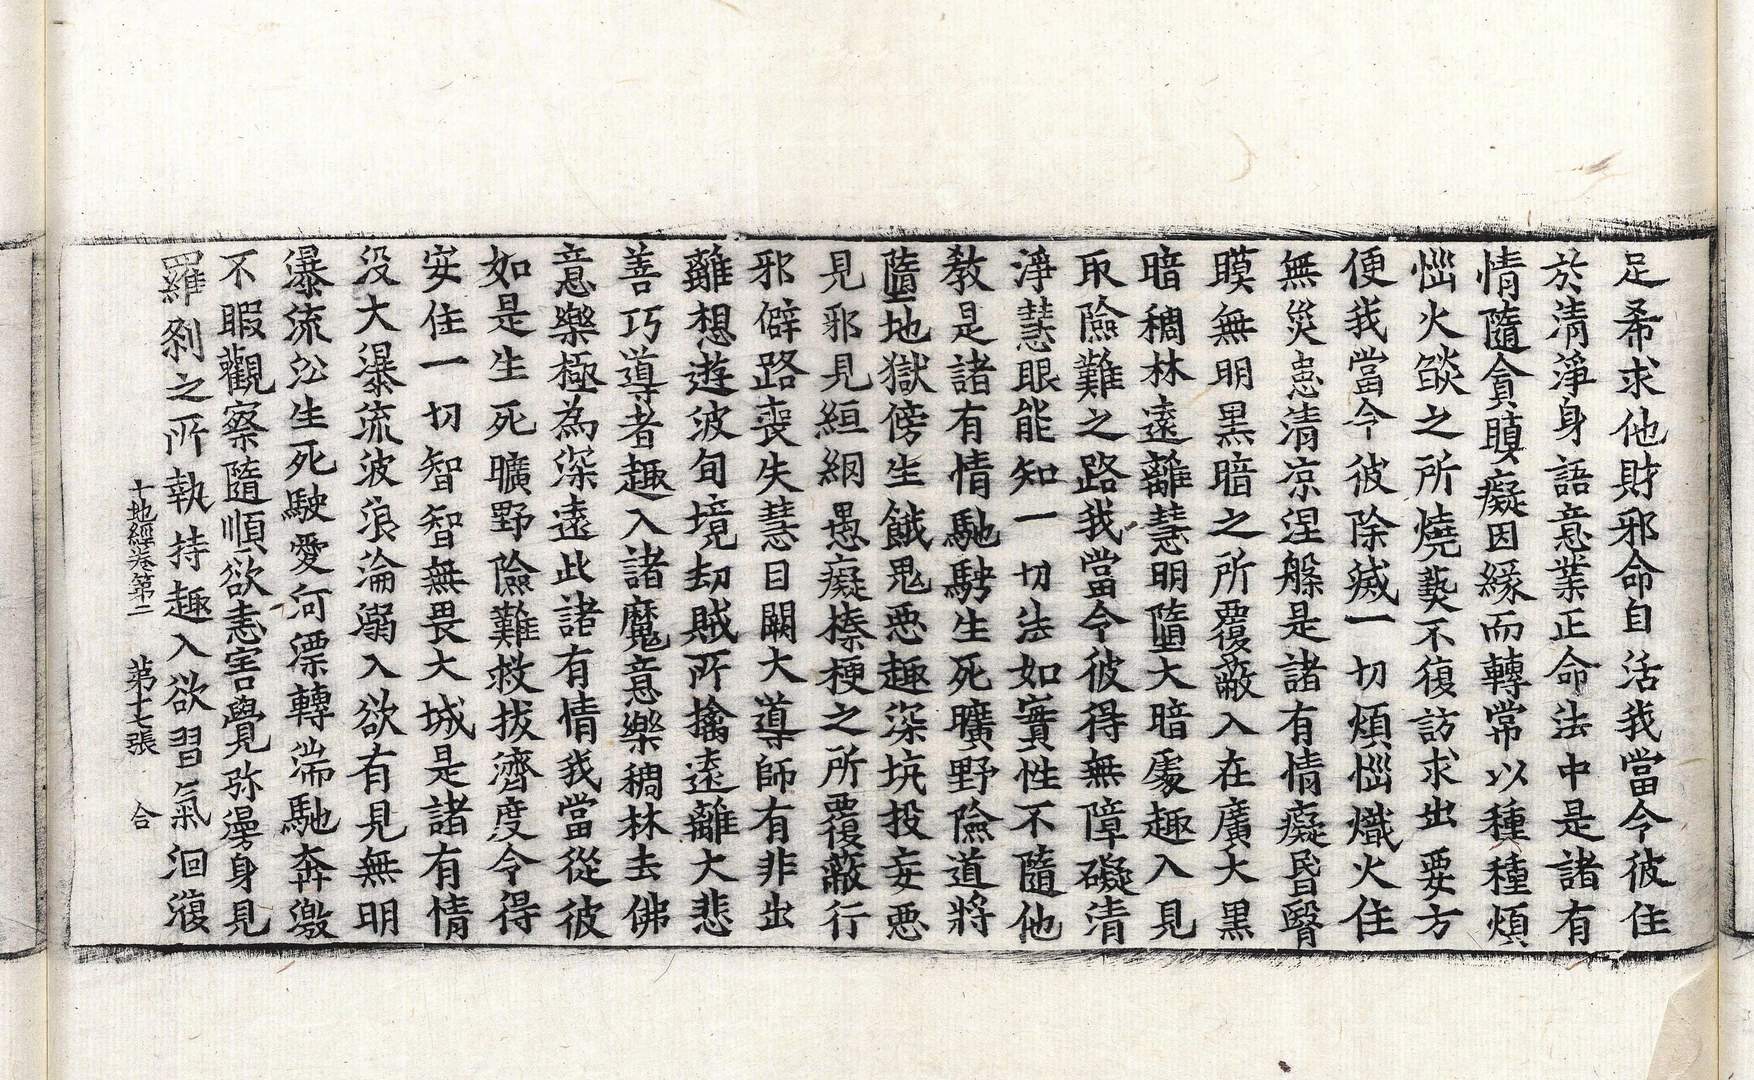 足希求他財邪命自活我當令彼住
於清淨身語意業正命法中是諸有
情隨貪瞋癡因緣而轉常以種種煩
惱火燄之所燒爇不復訪求出要方
便我當令彼除滅一切煩惱熾火住
無災患清涼涅槃是諸有情癡昬瞖
瞙無明黑暗之所覆蔽入在廣大黒
暗稠林遠離慧明墮大暗處趣入見
取險難之路我當令彼得無障礙清
淨慧眼能知一切法如實性不隨他
教是諸有情馳騁生死曠野險道將
墮地獄傍生餓鬼惡趣深坑投妄惡
見邪見絙網愚癡榛梗之所覆蔽行
邪僻路喪失慧目闕大導師有非出
離想遊波旬境刧賊所擒遠離大悲
善巧導者趣入諸魔意樂稠林去佛
意樂極為深遠此諸有情我當從彼
如是生死曠野險難救拔濟度令得
安住一切智智無畏大城是諸有情
没大瀑流波浪淪溺入欲有見無明
瀑流㳂生死駛愛河漂轉湍馳奔激
不暇觀察隨順欲恚害覺弥漫身見
羅剎之所執持趣入欲習氣洄澓
十地經卷第二 第十七張 合